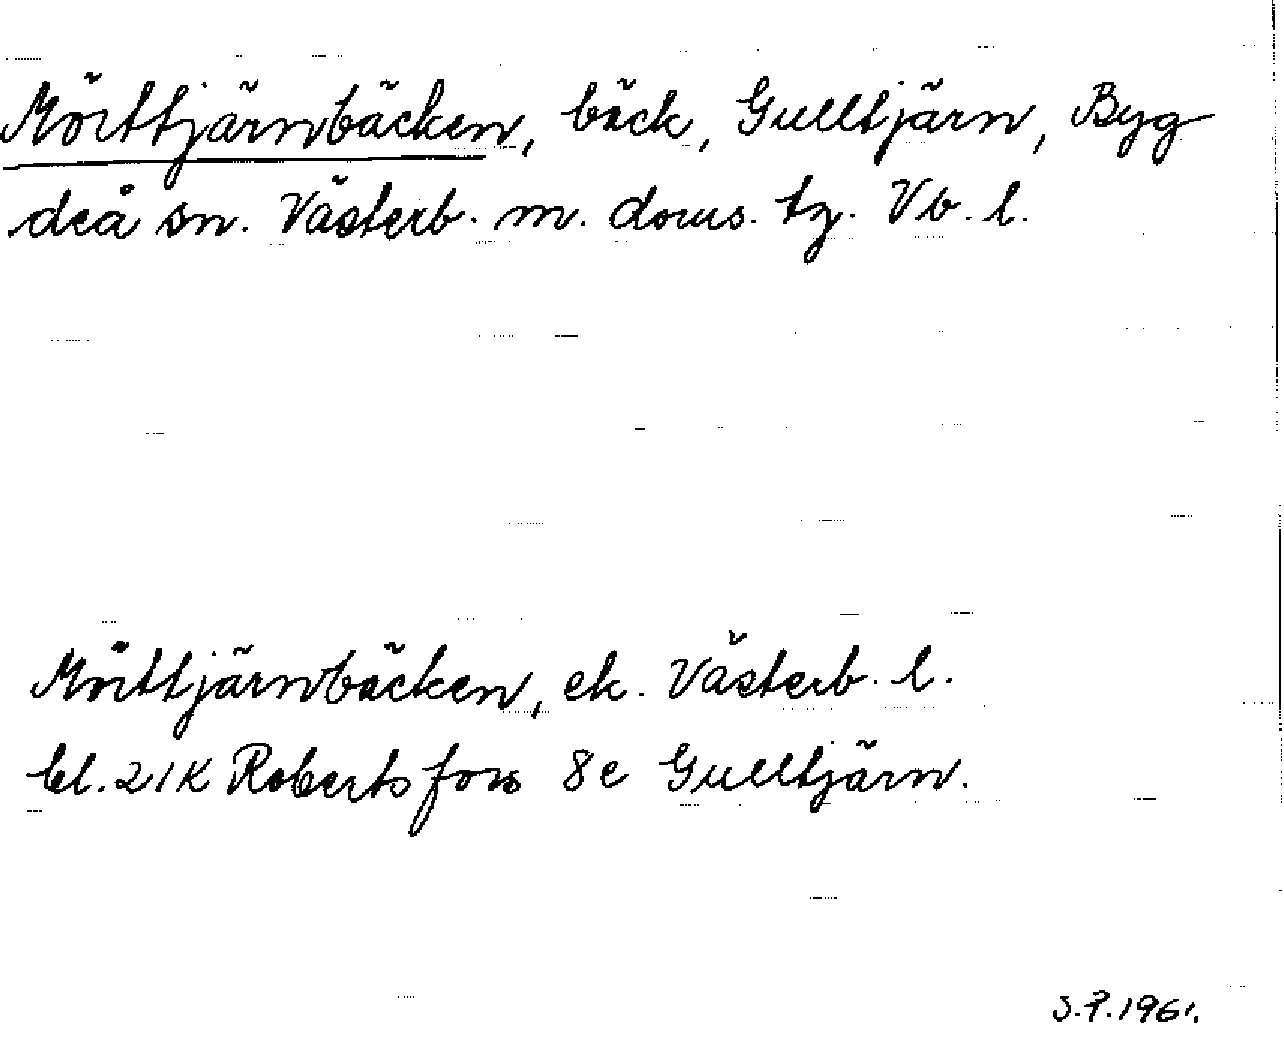 Mörttjärnbäcken, bäck, Gulltjärn, Byg
deå sn. Västerb. m. doms. tg. Vb. l.
Mörttjärnbäcken, ek. Västerb. l.
bl. 21K Robertsfors 8e Gulltjärn.
S.P. 1961.